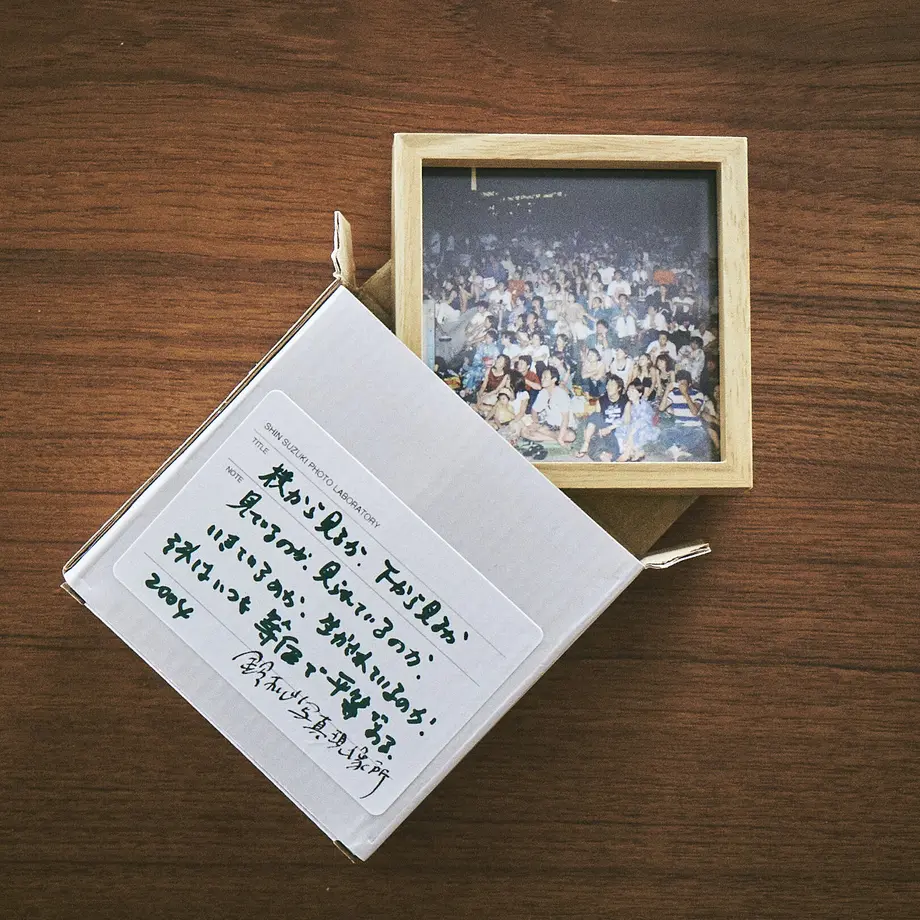 SHIN SUZUKI PHOTO LABORATORY
TITLE
横から見るか、下から見るか
NOTE
見ているのか、見られているのか、
いきているのか、生かされているのか、
それはいつも等価で平等である。
2004
鈴木心写真現像所